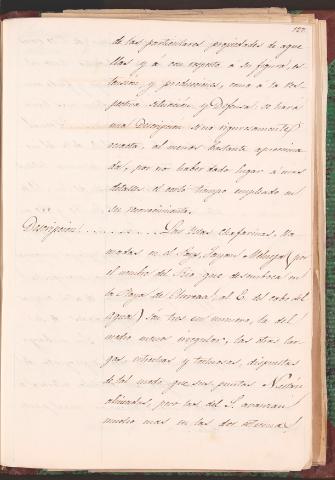 122.
de las particulares propiedades de aque
llas y á con respecto a su figura, es
tension, y predominio, como a la res
pectiva situacion y Defensa se hara
una Descripcion si no rigurosamente
exacta, al menos bastante aproxima
da, por no haber dado lugar a mas
detalles el corto tiempo empleado en
su reconocimiento.
Descripcion. Las Islas Chafarinas, No
madas en el Pays, (por
el nombre del Rio que desemboca en
la Playa de al E. del cabo del
Agua) Son tres en numero, la del
medio menos irregular, las otras lar
gas, estrechas y tortuosas, dispuestas
de tal modo que sus puntas N. están
alineadas, pero las del S. avanzan
mucho mas en las dos